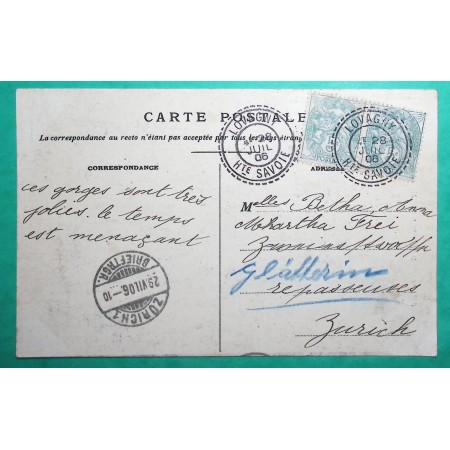 CARTE POSTALE
La correspondance au recto n'étant pas acceptée par tous les pays étran
CORRESPONDANCE
ADRESSE
LOVAGNY
28
JUIL
06
Hte SAVOIE
LOVAGNY
28
JUIL
06
Hte SAVOIE
ces gorges sont très
jolies. le temps
est menaçant
Melles Betha, Anna
Martha Frei
Glätterin
repasseuses
Zurich
ZÜRICH 1
29.VII.06.-10
BRIEFTRGR.